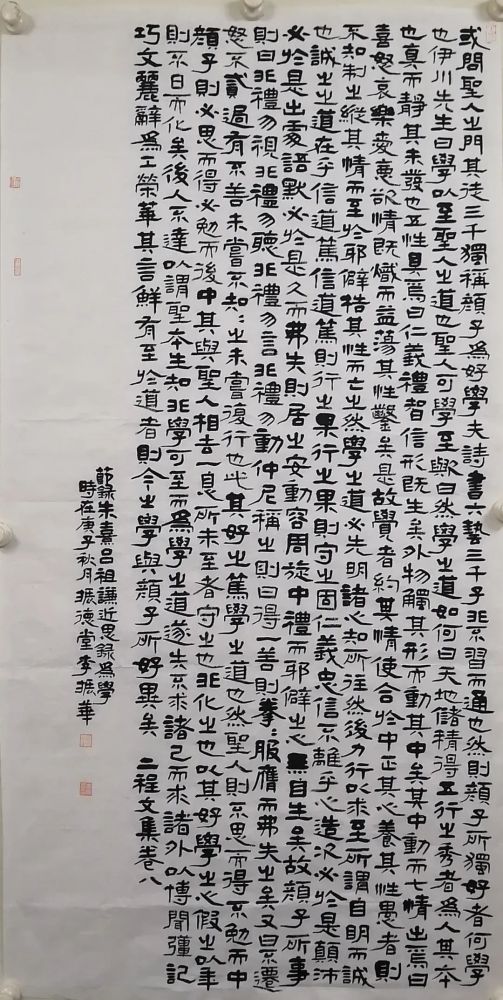 或問聖人之門其徒三千獨稱顏子為好學夫詩書六藝三千子非不習而通也然則顏子所獨好者何學
也伊川先生曰學以至聖人之道也聖人可學至歟曰然學之道如何曰天地儲精得五行之秀者為人其本
也真而靜其未發也五性具焉曰仁義禮智信形既生矣外物觸其形而動其中矣其中動而七情出焉曰
喜怒哀樂愛惡欲情既熾而益蕩其性鑿矣是故覺者約其情使合於中正其心養其性愚者則
不知制之縱其情而至於邪僻牿其性而亡之然學之道必先明諸心知所往然後力行以求至所謂自明而誠
也誠之之道在乎信道篤信道篤則行之果行之果則守之固仁義忠信不離乎心造次必於是顛沛
必於是出處語默必於是久而弗失則居之安動容周旋中禮而邪僻之心無自生矣故顏子所事
則曰非禮勿視非禮勿聽非禮勿言非禮勿動仲尼稱之則曰得一善則拳〻服膺而弗失之矣又曰不遷
怒不貳過有不善未嘗不知〻之未嘗復行也此其好之篤學之道也然聖人則不思而得不勉而中
顏子則必思而得必勉而後中其與聖人相去一息所未至者守之也非化之也以其好學之心假之以年
則不日而化矣後人不達以謂聖本生知非學可至而為學之道遂失不求諸己而求諸外以博聞彊記
巧文麗辭為工榮華其言鮮有至於道者則今之學與顏子所好異矣 二程文集卷八
節錄朱熹呂祖謙近思錄為學
時在庚子秋月振德堂李振華